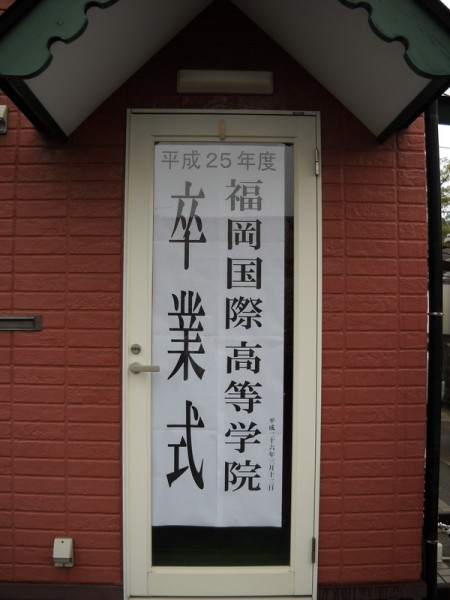 平成25年度
福岡国際高等学院
卒業式
平成二十六年三月十二日